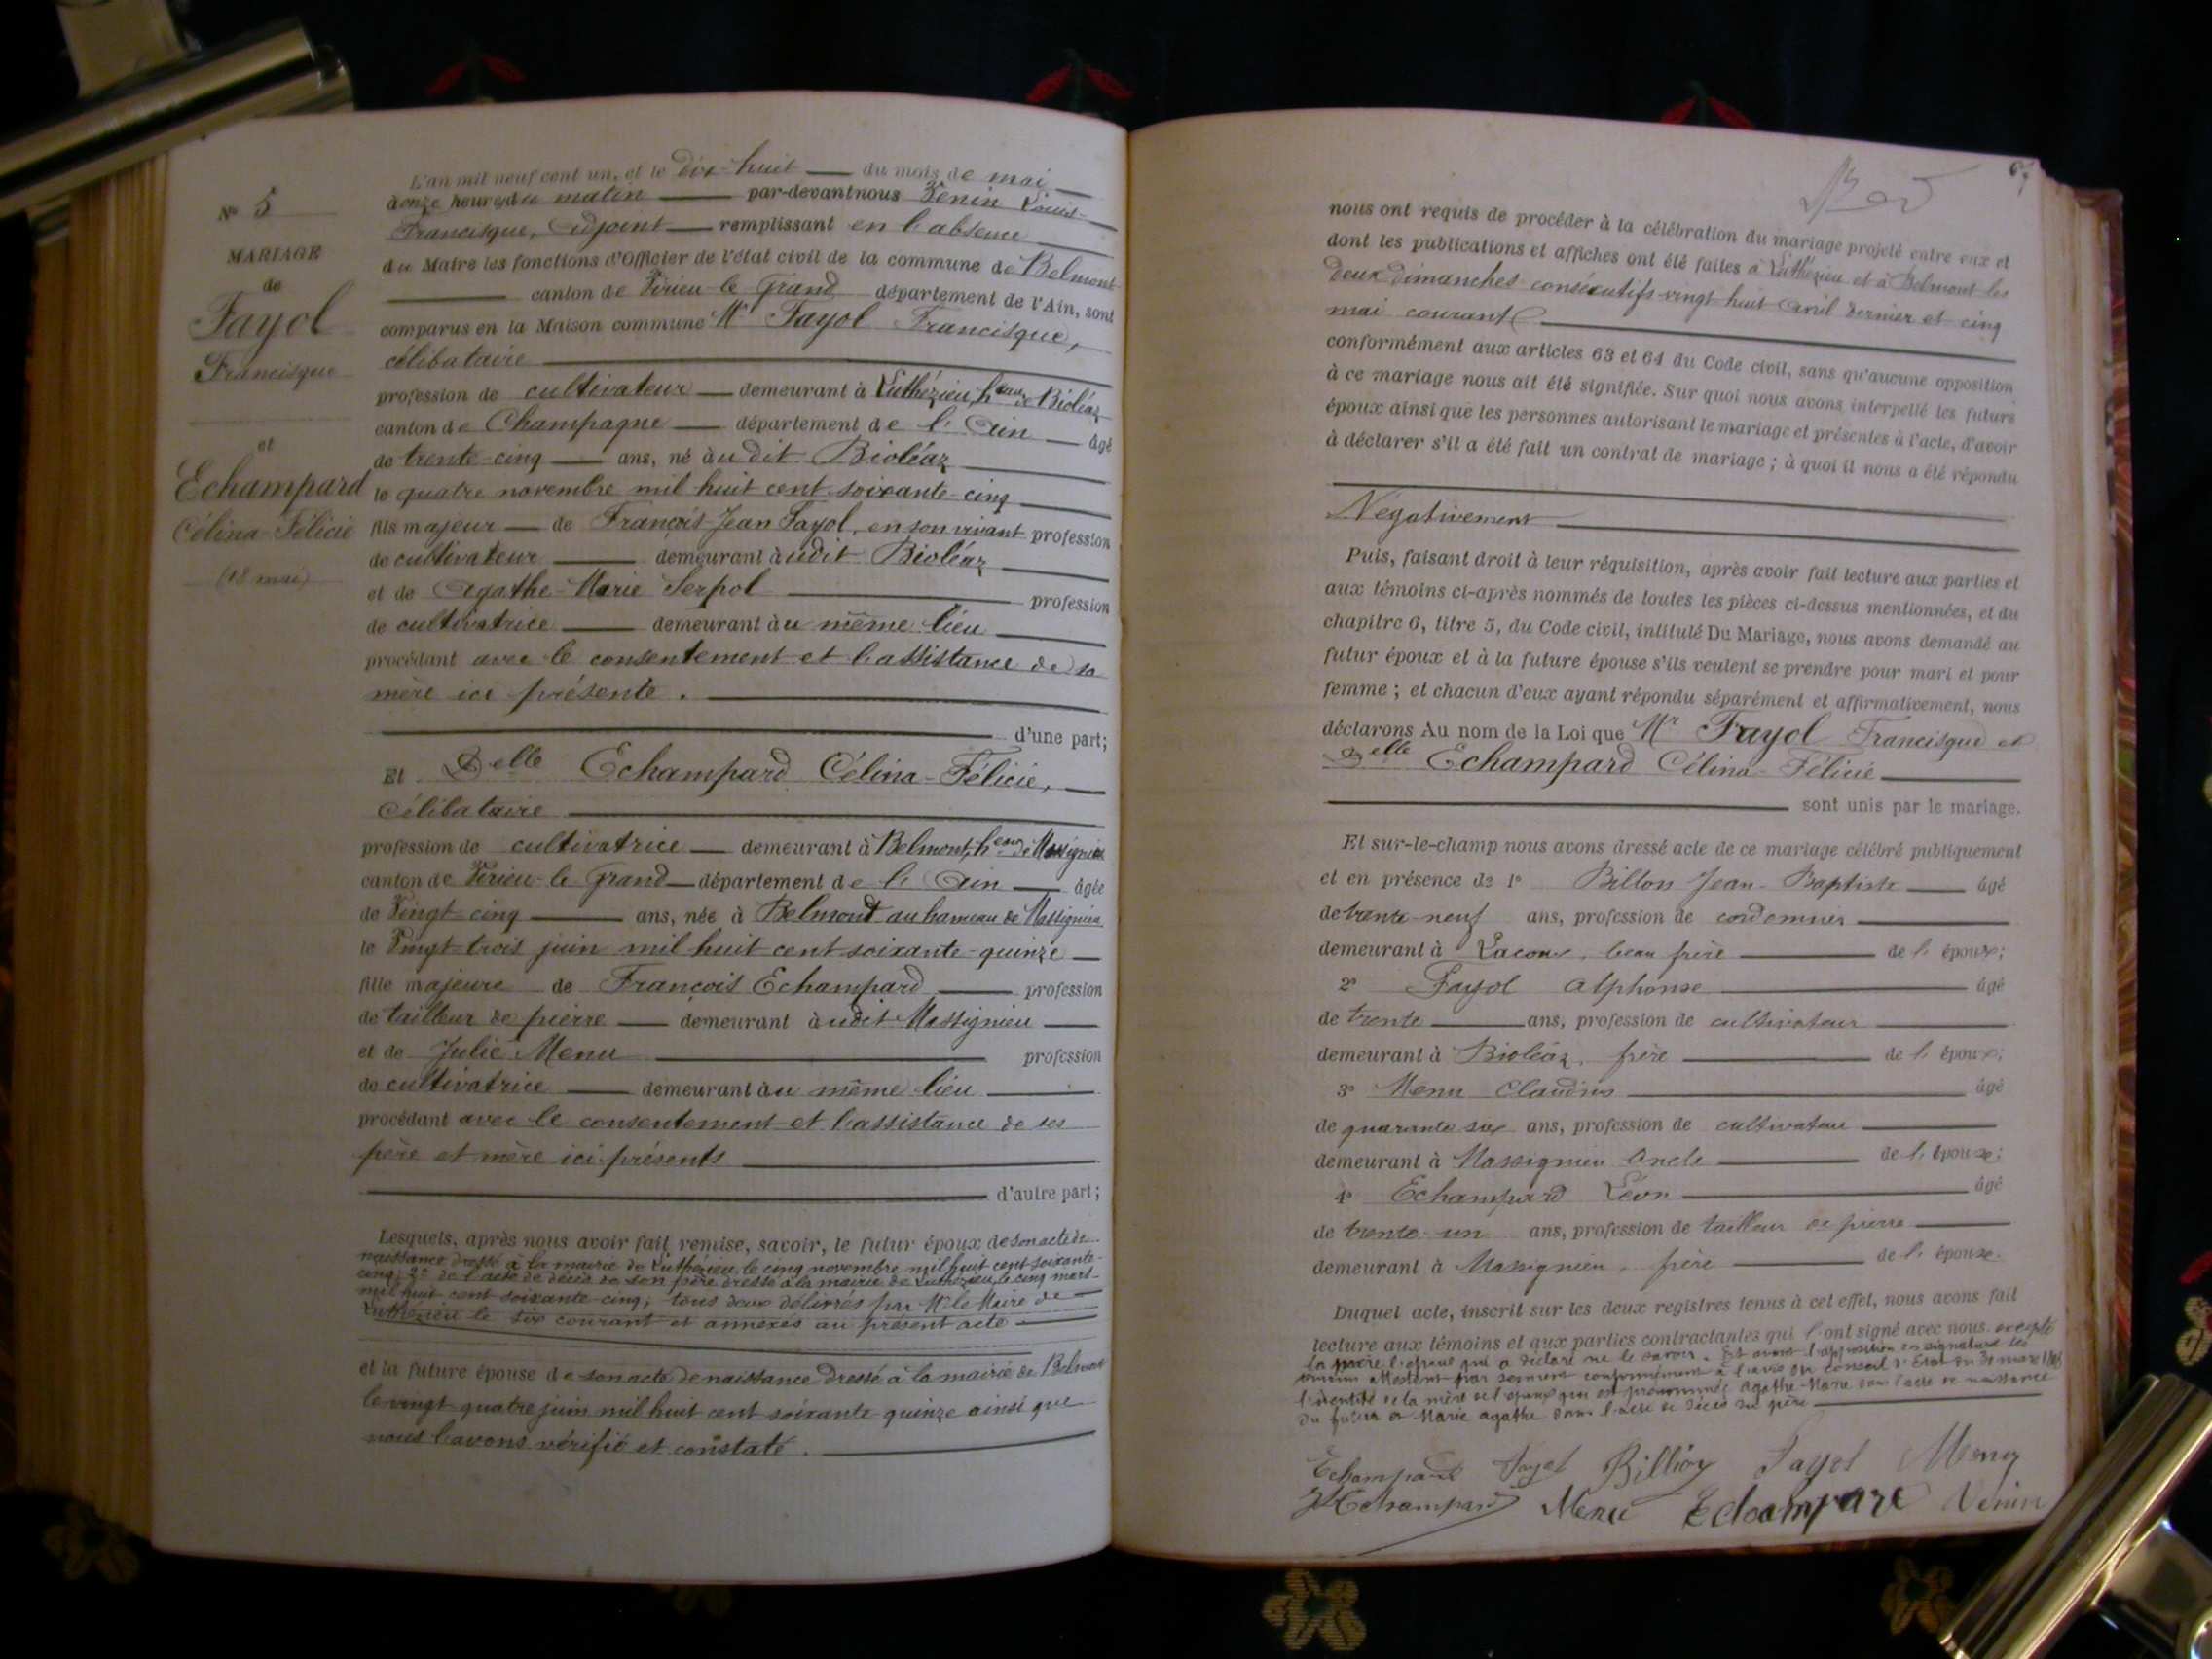 N° 5
MARIAGE
de
Fayol
Francisque
et
Echampard
Célina-Félicie
(18 mai)
L'an mil neuf cent un, et le dix-huit du mois de mai
à onze heures du matin par-devant nous Venin Louis-
Francisque, adjoint remplissant en l'absence
du Maire les fonctions d'Officier de l'état civil de la commune de Belmont
canton de Virieu-le-Grand département de l'Ain, sont
comparus en la Maison commune Mr Fayol Francisque,
célibataire
profession de cultivateur demeurant à Luthézieu, heau de Bioléaz
canton de Champagne département de l'Ain âgé
de trente-cinq ans, né audit Bioléaz
le quatre novembre mil huit cent soixante-cinq
fils majeur de François-Jean Fayol, en son vivant profession
de cultivateur demeurant audit Bioléaz
et de Agathe-Marie Serpol profession
de cultivatrice demeurant au même lieu
procédant avec le consentement et l'assistance de sa
mère ici présente.
d'une part;
Et Delle Echampard Célina-Félicie,
célibataire
profession de cultivatrice demeurant à Belmont, heau de Massignieu
canton de Virieu-le-Grand département de l'Ain âgée
de vingt-cinq ans, née à Belmont au hameau de Massignieu
le vingt-trois juin mil huit cent soixante-quinze
fille majeure de François Echampard profession
de tailleur de pierre demeurant audit Massignieu
et de Julie Menu profession
de cultivatrice demeurant au même lieu
procédant avec le consentement et l'assistance de ses
père et mère ici présents
d'autre part;
Lesquels, après nous avoir fait remise, savoir, le futur époux de son acte de
naissance dressé à la mairie de Luthézieu, le cinq novembre mil huit cent soixante-
cinq; 2° de l'acte de décès de son père dressé à la mairie de Luthézieu, le cinq mars
mil huit cent soixante-cinq; tous deux délivrés par Mr le Maire de
Luthézieu le six courant et annexés au présent acte
et la future épouse de son acte de naissance dressé à la mairie de Belmont
le vingt-quatre juin mil huit cent soixante-quinze ainsi que
nous l'avons vérifié et constaté.
67
nous ont requis de procéder à la célébration du mariage projeté entre eux et
dont les publications et affiches ont été faites à Luthézieu et à Belmont les
deux dimanches consécutifs vingt-huit avril dernier et cinq
mai courant
conformément aux articles 63 et 64 du Code civil, sans qu'aucune opposition
à ce mariage nous ait été signifiée. Sur quoi nous avons interpellé les futurs
époux ainsi que les personnes autorisant le mariage et présentes à l'acte, d'avoir
à déclarer s'il a été fait un contrat de mariage; à quoi il nous a été répondu
Négativement
Puis, faisant droit à leur réquisition, après avoir fait lecture aux parties et
aux témoins ci-après nommés de toutes les pièces ci-dessus mentionnées, et du
chapitre 6, titre 5, du Code civil, intitulé Du Mariage, nous avons demandé au
futur époux et à la future épouse s'ils veulent se prendre pour mari et pour
femme; et chacun d'eux ayant répondu séparément et affirmativement, nous
déclarons Au nom de la Loi que Mr Fayol Francisque et
Delle Echampard Célina-Félicie
sont unis par le mariage.
Et sur-le-champ nous avons dressé acte de ce mariage célébré publiquement
et en présence de 1° Jean-Baptiste âgé
de trente-neuf ans, profession de cordonnier
demeurant à beau-frère de l'époux;
2° Fayol Alphonse âgé
de trente ans, profession de cultivateur
demeurant à Bioléaz, frère de l'époux;
3° Menu Claudius âgé
de quarante-six ans, profession de cultivateur
demeurant à Massignieu oncle de l'épouse;
4° Echampard Léon âgé
de trente-un ans, profession de tailleur de pierre
demeurant à Massignieu, frère de l'épouse.
Duquel acte, inscrit sur les deux registres tenus à cet effet, nous avons fait
lecture aux témoins et aux parties contractantes qui l'ont signé avec nous, excepté
la mère de l'époux qui a déclaré ne le savoir. Et avant l'apposition des signatures les
témoins attestent par serment conformément à l'avis du conseil d'Etat du 30 mars 1808
l'identité de la mère de l'époux qui est prénommée Agathe-Marie dans l'acte de naissance
du futur et Marie Agathe dans l'acte de décès du père
Echampard Fayol Fayol Menu
Echampard Menu Echampard Venin